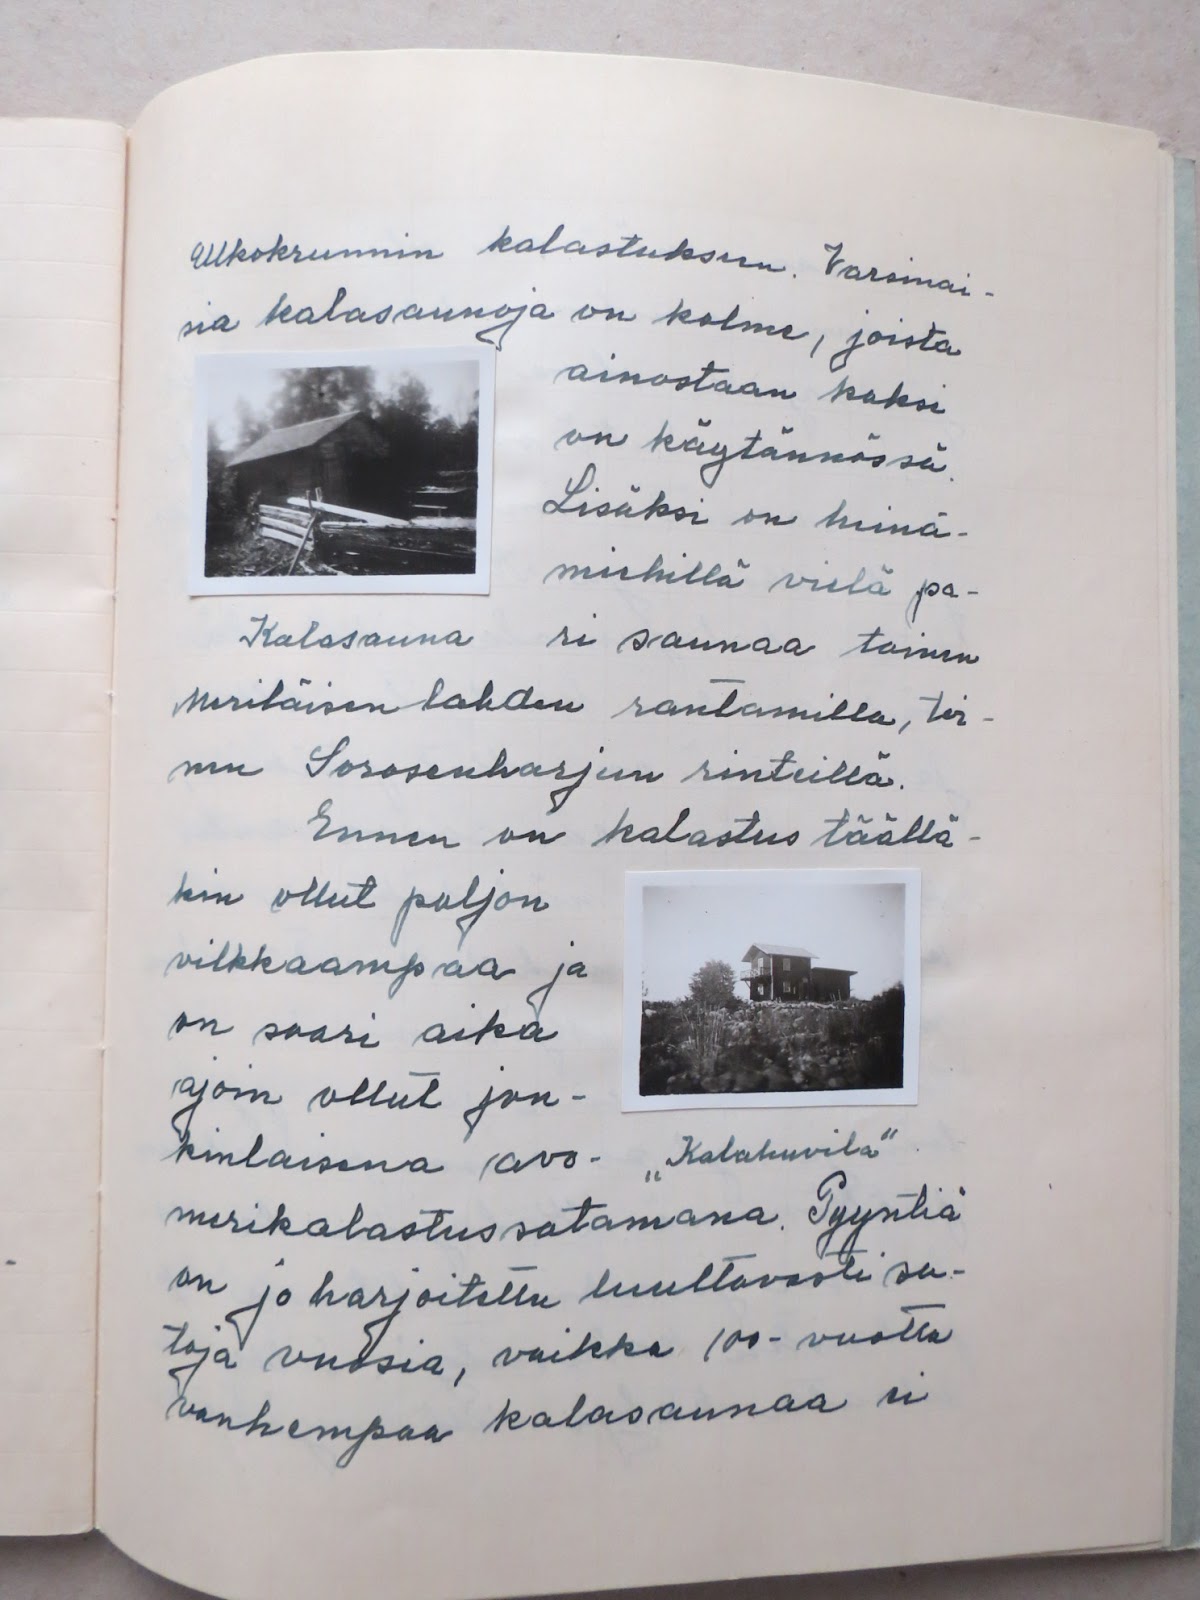 Ulkokrunnin kalastukseen. Varsinai-
sia kalasaunoja on kolme, joista
ainostaan kaksi
on käytännössä.
Lisäksi on heinä-
miehillä vielä pa-
Kalasauna
ri saunaa toinen
Meriläisenlahden rantamilla, toi-
nen Sorosenharjun rinteillä.
Ennen on kalastus täällä-
kin ollut paljon
vilkkaampaa ja
on saari aika
ajoin ollut jon-
kinlaisena avo-
„Kalahuvila“
merikalastussatamana. Pyyntiä
on jo harjoitettu luultavasti sa-
toja vuosia, vaikka 100-vuotta
vanhempaa kalasaunaa ei